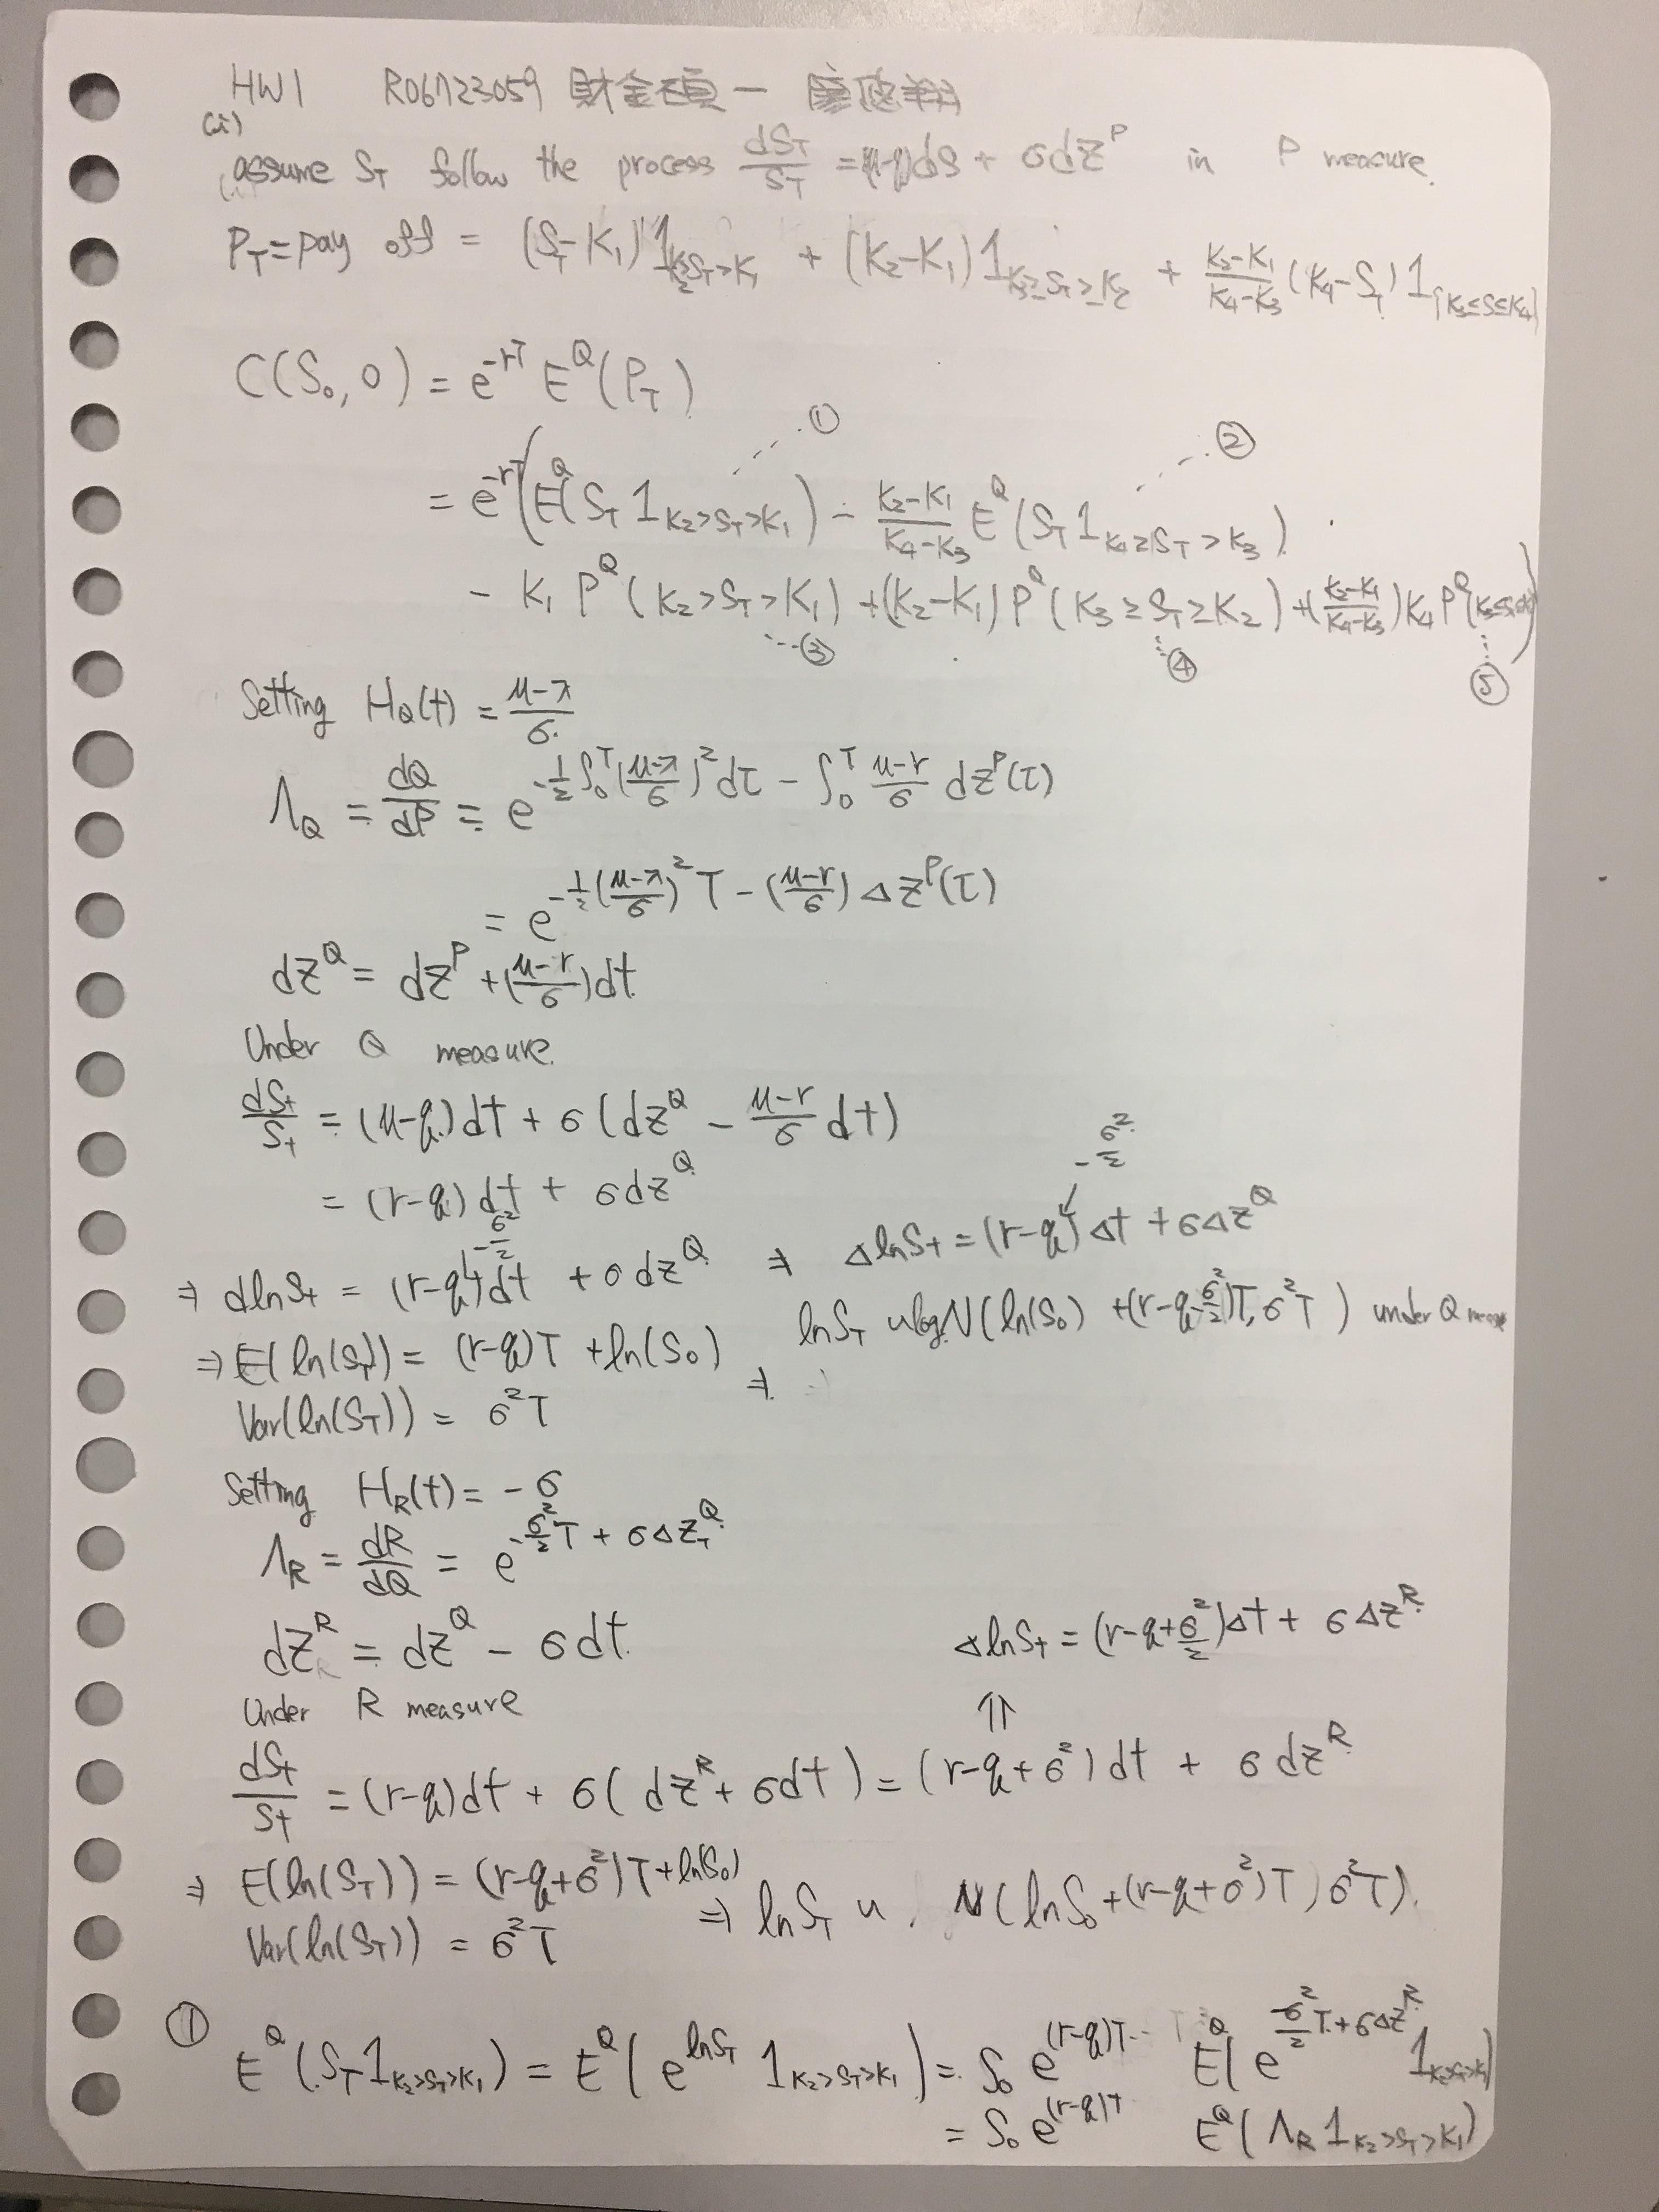 HW1 R06723059 財金碩一
(ii)
assume S_T follow the process dS_T/S_T = (μ-q)ds + σdz^P in P measure.
P_T = pay off = (S_T-K₁)1_{K₂≥S_T>K₁} + (K₂-K₁)1_{K₃≥S_T≥K₂} + (K₂-K₁)/(K₄-K₃) (K₄-S_T)1_{{K₃≤S≤K₄}}
C(S₀, 0) = e^{-rT} E^Q(P_T)
①
②
= e^{-rT}(E^Q(S_T 1_{K₂>S_T>K₁}) - (K₂-K₁)/(K₄-K₃) E^Q(S_T 1_{K₄≥S_T>K₃})
- K₁ P^Q(K₂>S_T>K₁) + (K₂-K₁)P^Q(K₃≥S_T≥K₂) + ((K₂-K₁)/(K₄-K₃))K₄ P^Q
③ ④ ⑤
Setting H_Q(t) = (μ-r)/σ
Λ_Q = dQ/dP = e^{-½∫₀^T((μ-r)/σ)²dτ - ∫₀^T (μ-r)/σ dz^P(τ)}
= e^{-½((μ-r)/σ)²T - ((μ-r)/σ)Δz^P(τ)}
dz^Q = dz^P + ((μ-r)/σ)dt
Under Q measure.
dS_t/S_t = (μ-q)dt + σ(dz^Q - (μ-r)/σ dt)
= (r-q)dt + σdz^Q
⇒ dlnS_t = (r-q-σ²/2)dt + σdz^Q ⇒ ΔlnS_t = (r-q-σ²/2)Δt + σΔz^Q
⇒ E(ln(S_T)) = (r-q)T + ln(S₀) ⇒ lnS_T ~ N(ln(S₀) + (r-q-σ²/2)T, σ²T) under Q
Var(ln(S_T)) = σ²T
Setting H_R(t) = -σ
Λ_R = dR/dQ = e^{-σ²/2 T + σΔZ_T^Q}
dz^R = dz^Q - σdt
ΔlnS_t = (r-q+σ²/2)Δt + σΔz^R
Under R measure
⇑
dS_t/S_t = (r-q)dt + σ(dz^R + σdt) = (r-q+σ²)dt + σdz^R
⇒ E(ln(S_T)) = (r-q+σ²)T + ln(S₀) ⇒ lnS_T ~ N(lnS₀ + (r-q+σ²)T, σ²T).
Var(ln(S_T)) = σ²T
① E^Q(S_T 1_{K₂>S_T>K₁}) = E^Q(e^{lnS_T} 1_{K₂>S_T>K₁}) = S₀ e^{(r-q)T} E^Q(e^{-σ²/2 T + σΔz^R} 1_{K₂>S_T>K₁})
= S₀ e^{(r-q)T} E^Q(Λ_R 1_{K₂>S_T>K₁})